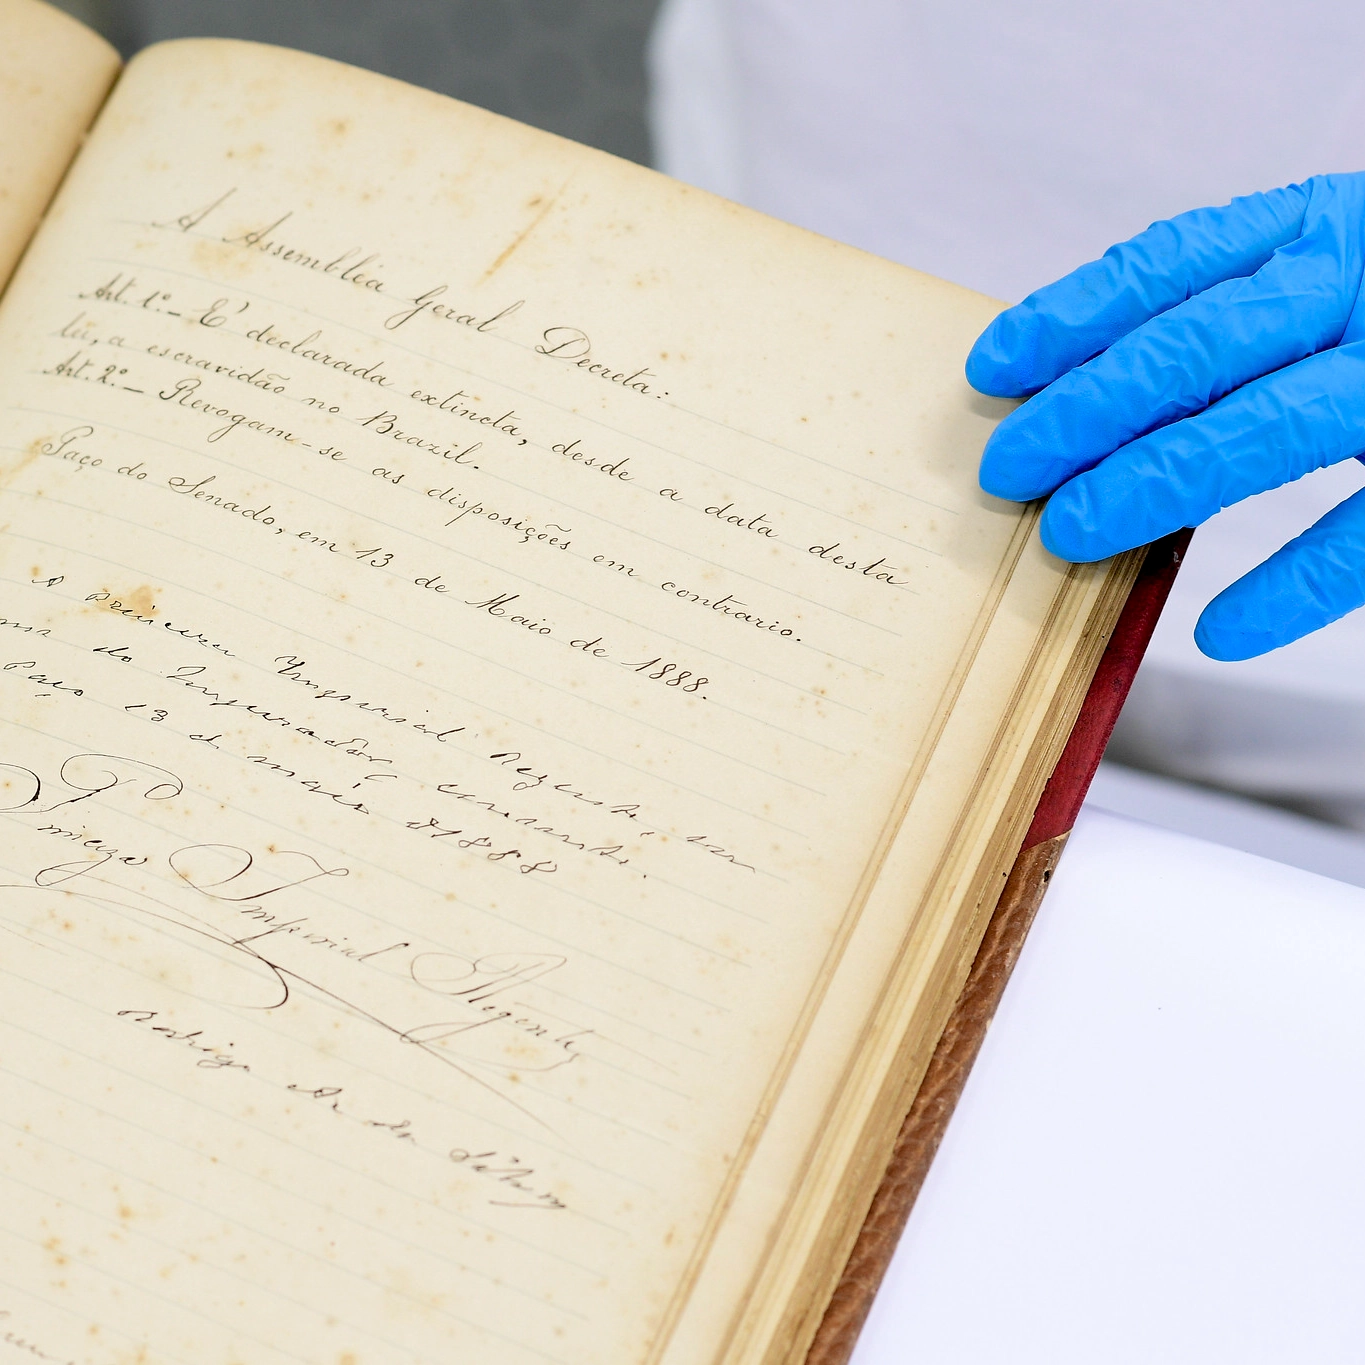 A Assembléa Geral Decreta:
Art. 1.º_ E' declarada extincta, desde a data desta
lei, a escravidão no Brazil.
Art. 2.º_ Revogam-se as disposições em contrario.
Paço do Senado, em 13 de Maio de 1888.
A Princeza Imperial Regente, em
nome do Imperador, consente.
Paço 13 de maio de 1888
Princeza Imperial Regente
Rodrigo A. da Silva